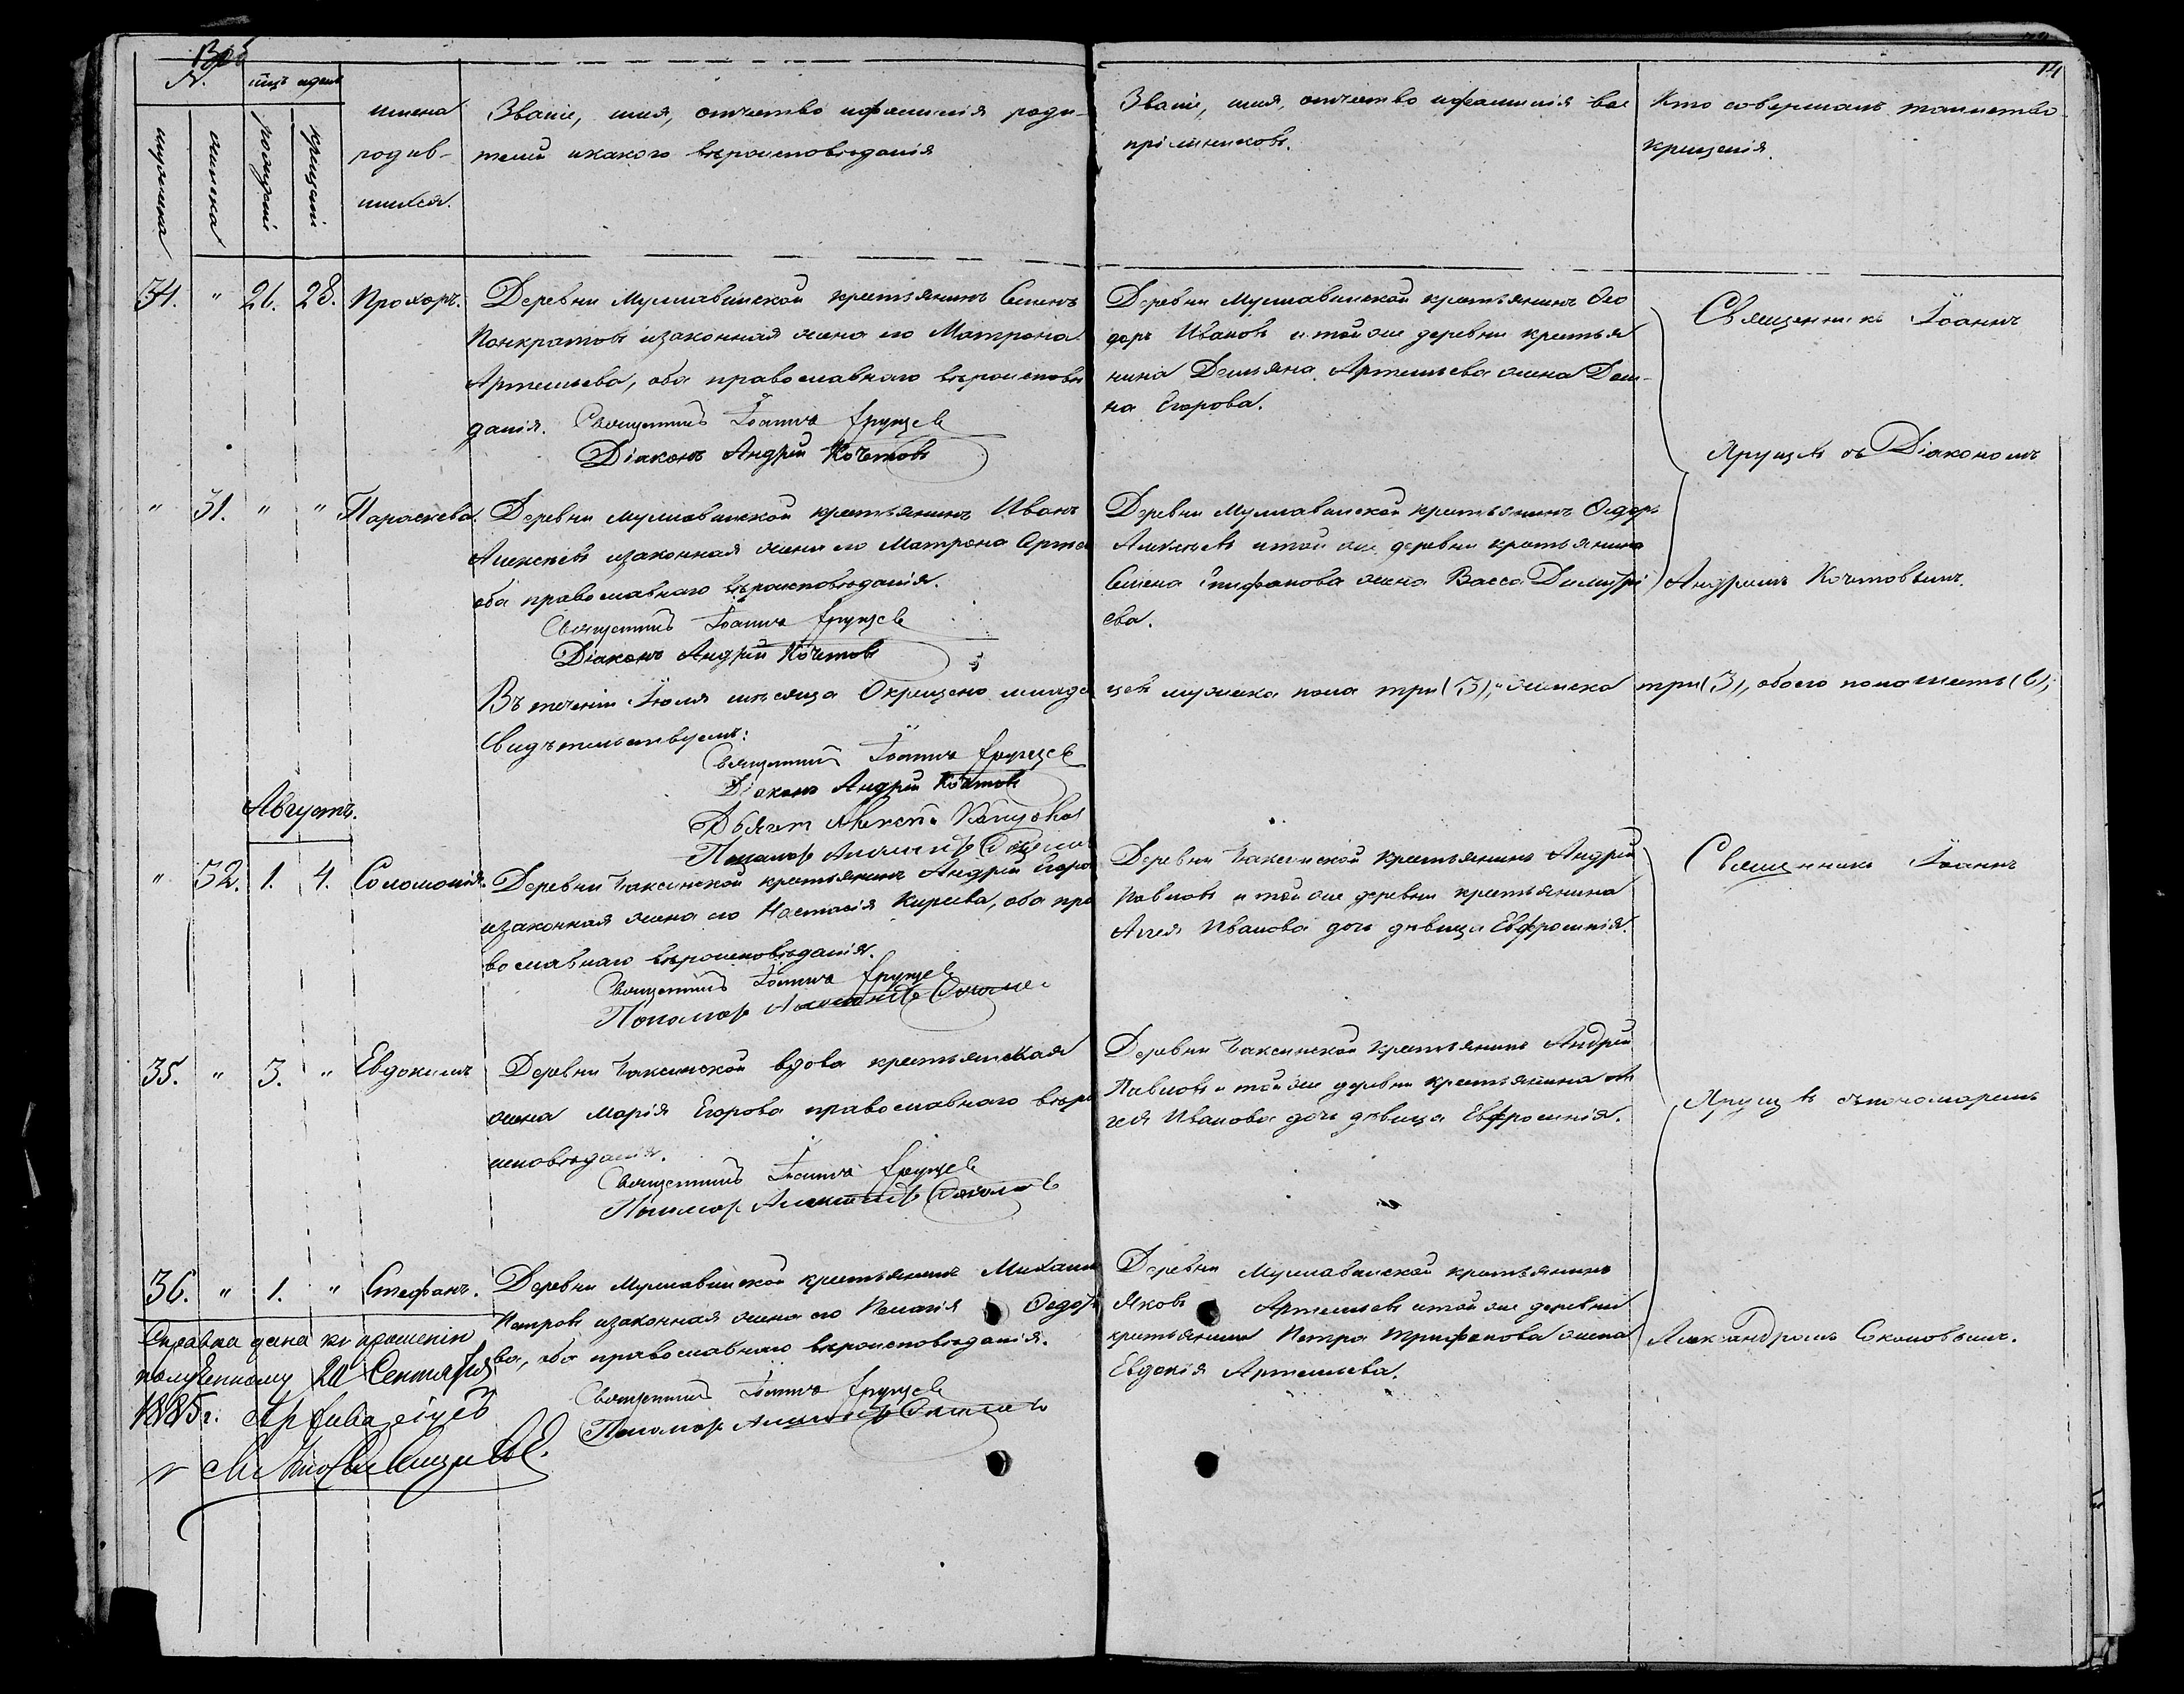 14
№.
мужеска
женска
рожденія
крещенія
имена
родив-
шихся.
Званіе, имя, отчество и фамилія роди-
телей и какого вѣроисповѣданія
Званіе, имя, отчество и фамилія вос
пріемниковъ.
Кто совершалъ таинство
крещенія.
34. " 26. 28. Прохоръ.
Деревни Муславинской крестьянинъ Семенъ
Панкратовъ и законная жена его Матрона
Артемьева, оба православнаго вѣроисповѣ
данія. Священникъ Іоаннъ Ярущевъ
Діаконъ Андрей Кочетовъ
Деревни Муславинской крестьянинъ Ѳео
доръ Ивановъ и той же деревни крестья
нина Демьяна Артемьева жена Дом-
на Егорова.
Священникъ Іоаннъ
Ярущевъ съ Діакономъ
Андреемъ Кочетовымъ.
" 31. " " Параскева.
Деревни Муславинской крестьянинъ Иванъ
Алексѣевъ и законная жена его Матрона Артем
оба православнаго вѣроисповѣданія.
Священникъ Іоаннъ Ярущевъ
Діаконъ Андрей Кочетовъ
Деревни Муславинской крестьянинъ Ѳедоръ
Алексѣевъ и той же деревни крестьянина
Семена Епифанова жена Васса Димитрі
ева.
Въ теченіи Іюля мѣсяца Окрещено младен цевъ мужеска пола три (3), женска три (3), обоего пола шесть (6),
Свидѣтельствуемъ:
Священникъ Іоаннъ Ярущевъ
Діаконъ Андрей Кочетовъ
Дьячекъ Алексѣй
Пономарь Александръ Соколовъ
Августъ.
" 32. 1. 4. Соломонія.
Деревни Баксинской крестьянинъ Андрей Егоров
и законная жена его Настасія Кирѣева, оба пра
вославнаго вѣроисповѣданія.
Священникъ Іоаннъ Ярущевъ
Пономарь Александръ Соколовъ
Деревни Баксинской крестьянинъ Андрей
Павловъ и той же деревни крестьянина
Аггея Иванова дочь дѣвица Евфросинія.
Священникъ Іоаннъ
Ярущевъ съ пономаремъ
Александромъ Соколовымъ.
35. " 3. " Евдокимъ
Деревни Баксинской вдова крестьянская
жена Марія Егорова православнаго вѣро
исповѣданія.
Священникъ Іоаннъ Ярущевъ
Пономарь Александръ Соколовъ
Деревни Баксинской крестьянинъ Андрей
Павловъ и той же деревни крестьянина Аг
гея Иванова дочь дѣвица Евфросинія.
36. " 1. " Стефанъ.
Деревни Муславинской крестьянинъ Михаил
Петровъ и законная жена его Пелагія Ѳедор
ва, оба православнаго вѣроисповѣданія.
Священникъ Іоаннъ Ярущевъ
Пономарь Александръ Соколовъ
Деревни Муславинской крестьянинъ
Яковъ Артемьевъ и той же деревни
крестьянина Петра Трифонова жена
Евдокія Артемьева.
Справка дана по прошенію
полученному 20 Сентября
1885 г. Архиваріусъ